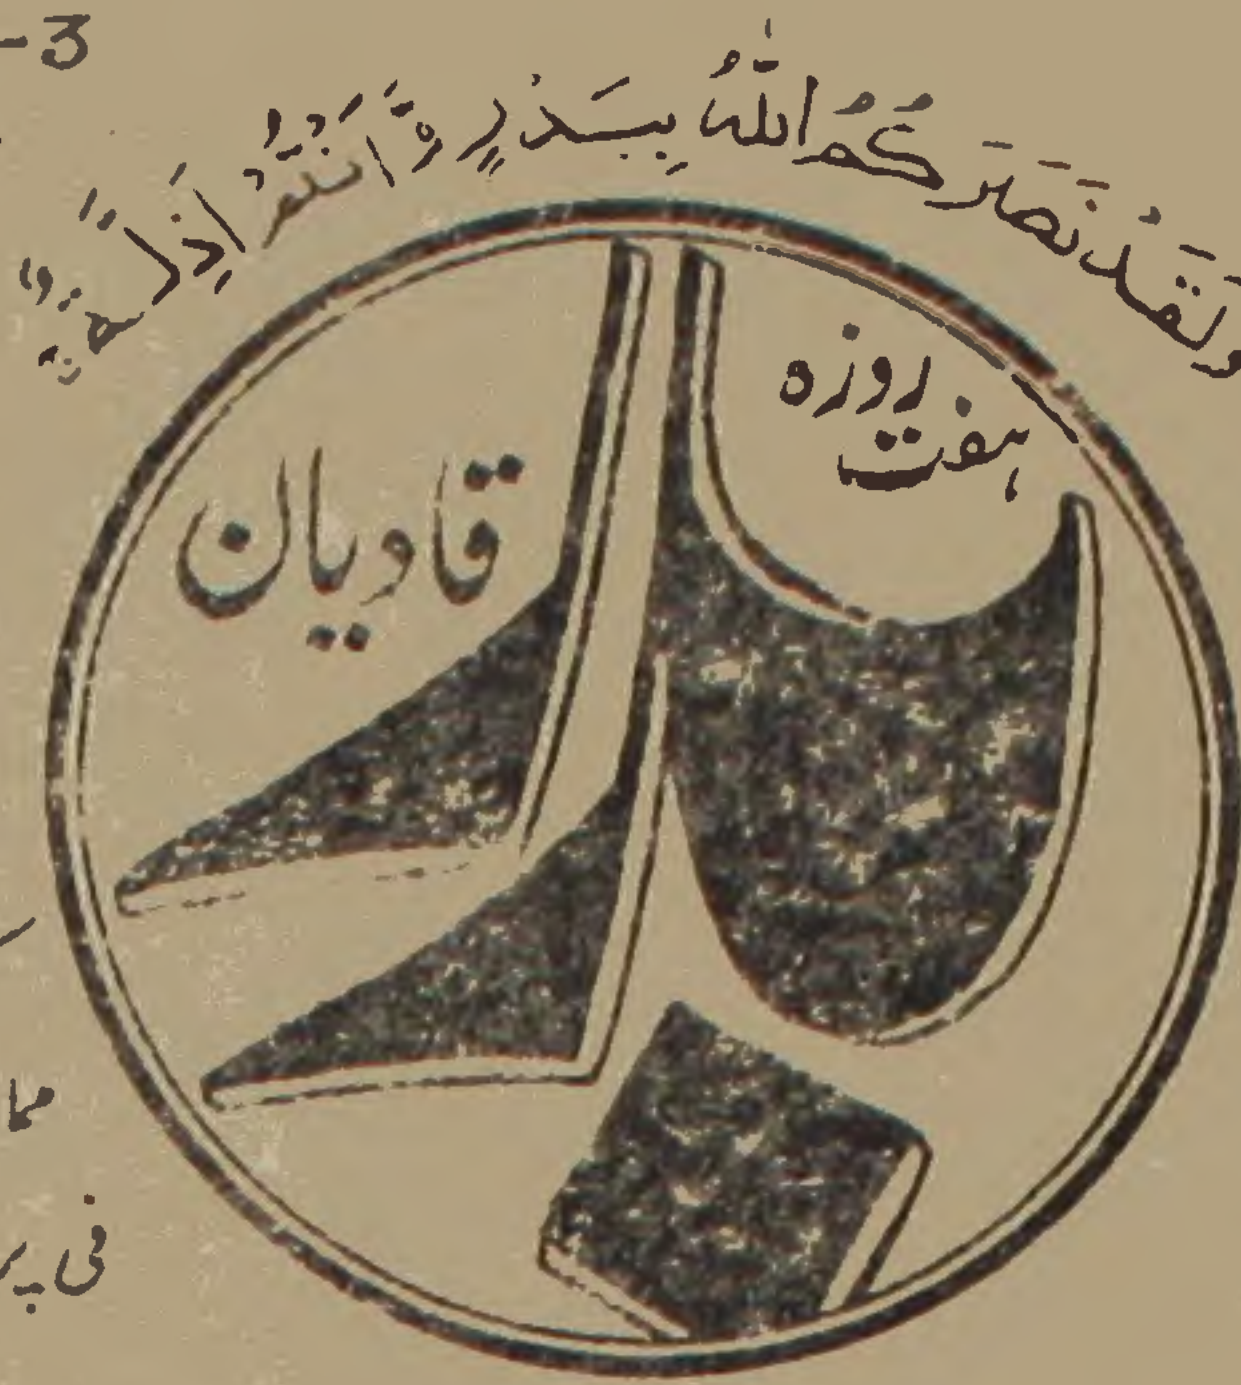 -3
وَلَقَدْ نَصَرَكُمُ اللّٰهُ بِبَدْرٍ وَّاَنْتُمْ اَذِلَّةٌ
ہفت روزہ
بدر
قادیان
مما
فی پر